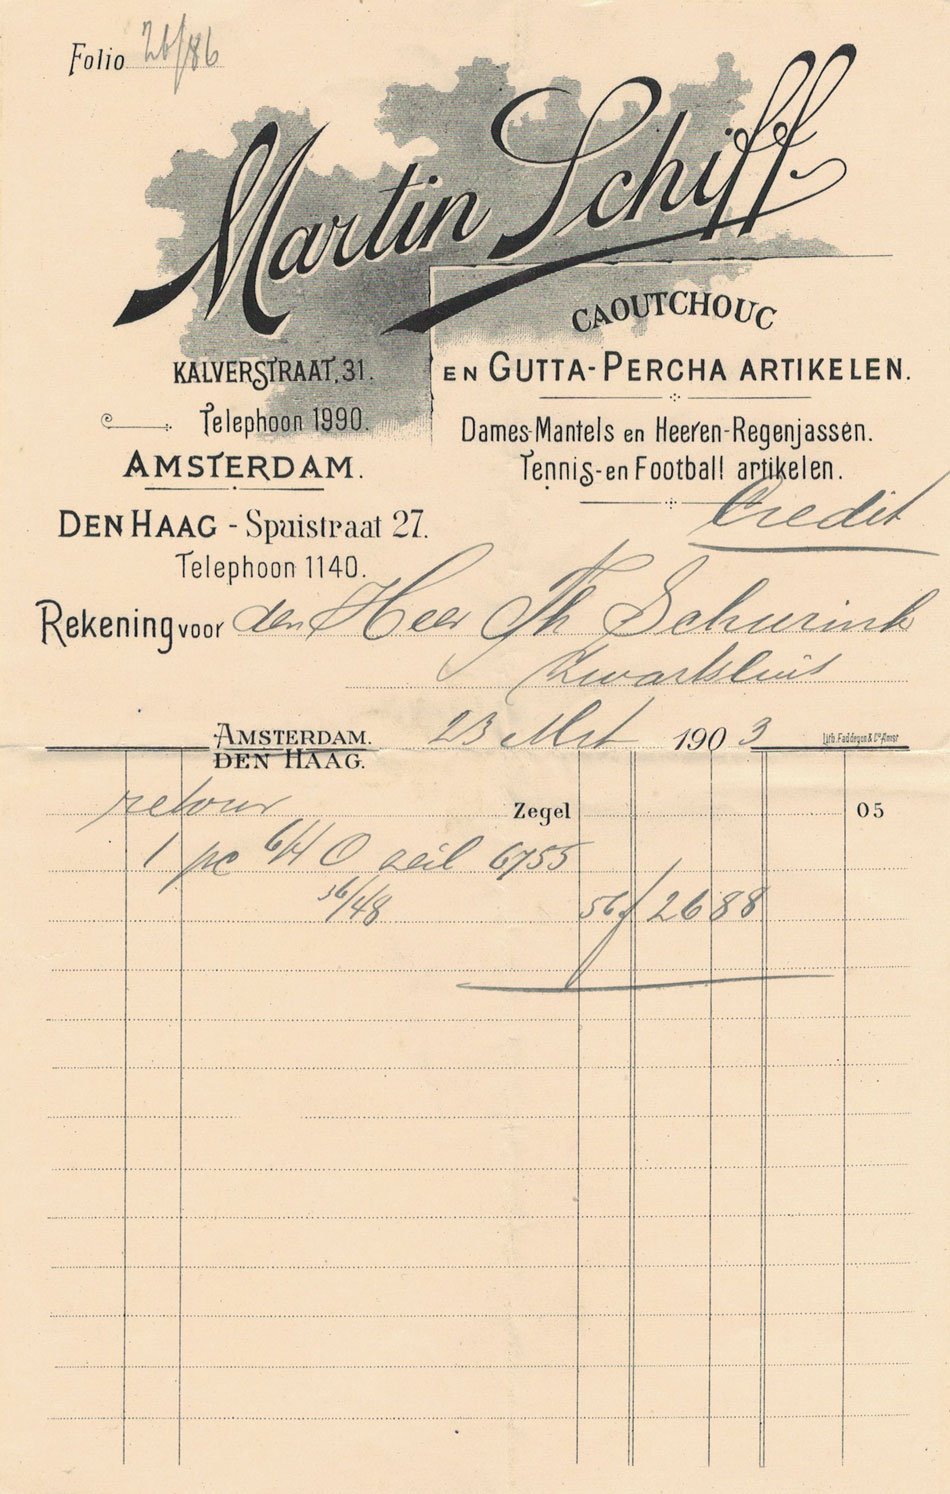 Folio 26/86
Martin Schiff.
CAOUTCHOUC
EN GUTTA-PERCHA ARTIKELEN.
Dames-Mantels en Heeren-Regenjassen.
Tennis-en Football artikelen.
KALVERSTRAAT, 31.
Telephoon 1990.
AMSTERDAM.
DEN HAAG - Spuistraat 27.
Telephoon 1140.
Credit
Rekening voor den Heer Th Schurink
Zwartsluis
AMSTERDAM. 23 Mrt 1903
DEN HAAG.
Lith. Faddegon & Co Amst
retour
Zegel 05
1 pc 6/4 O zeil 6755
56/48 56 f 2688